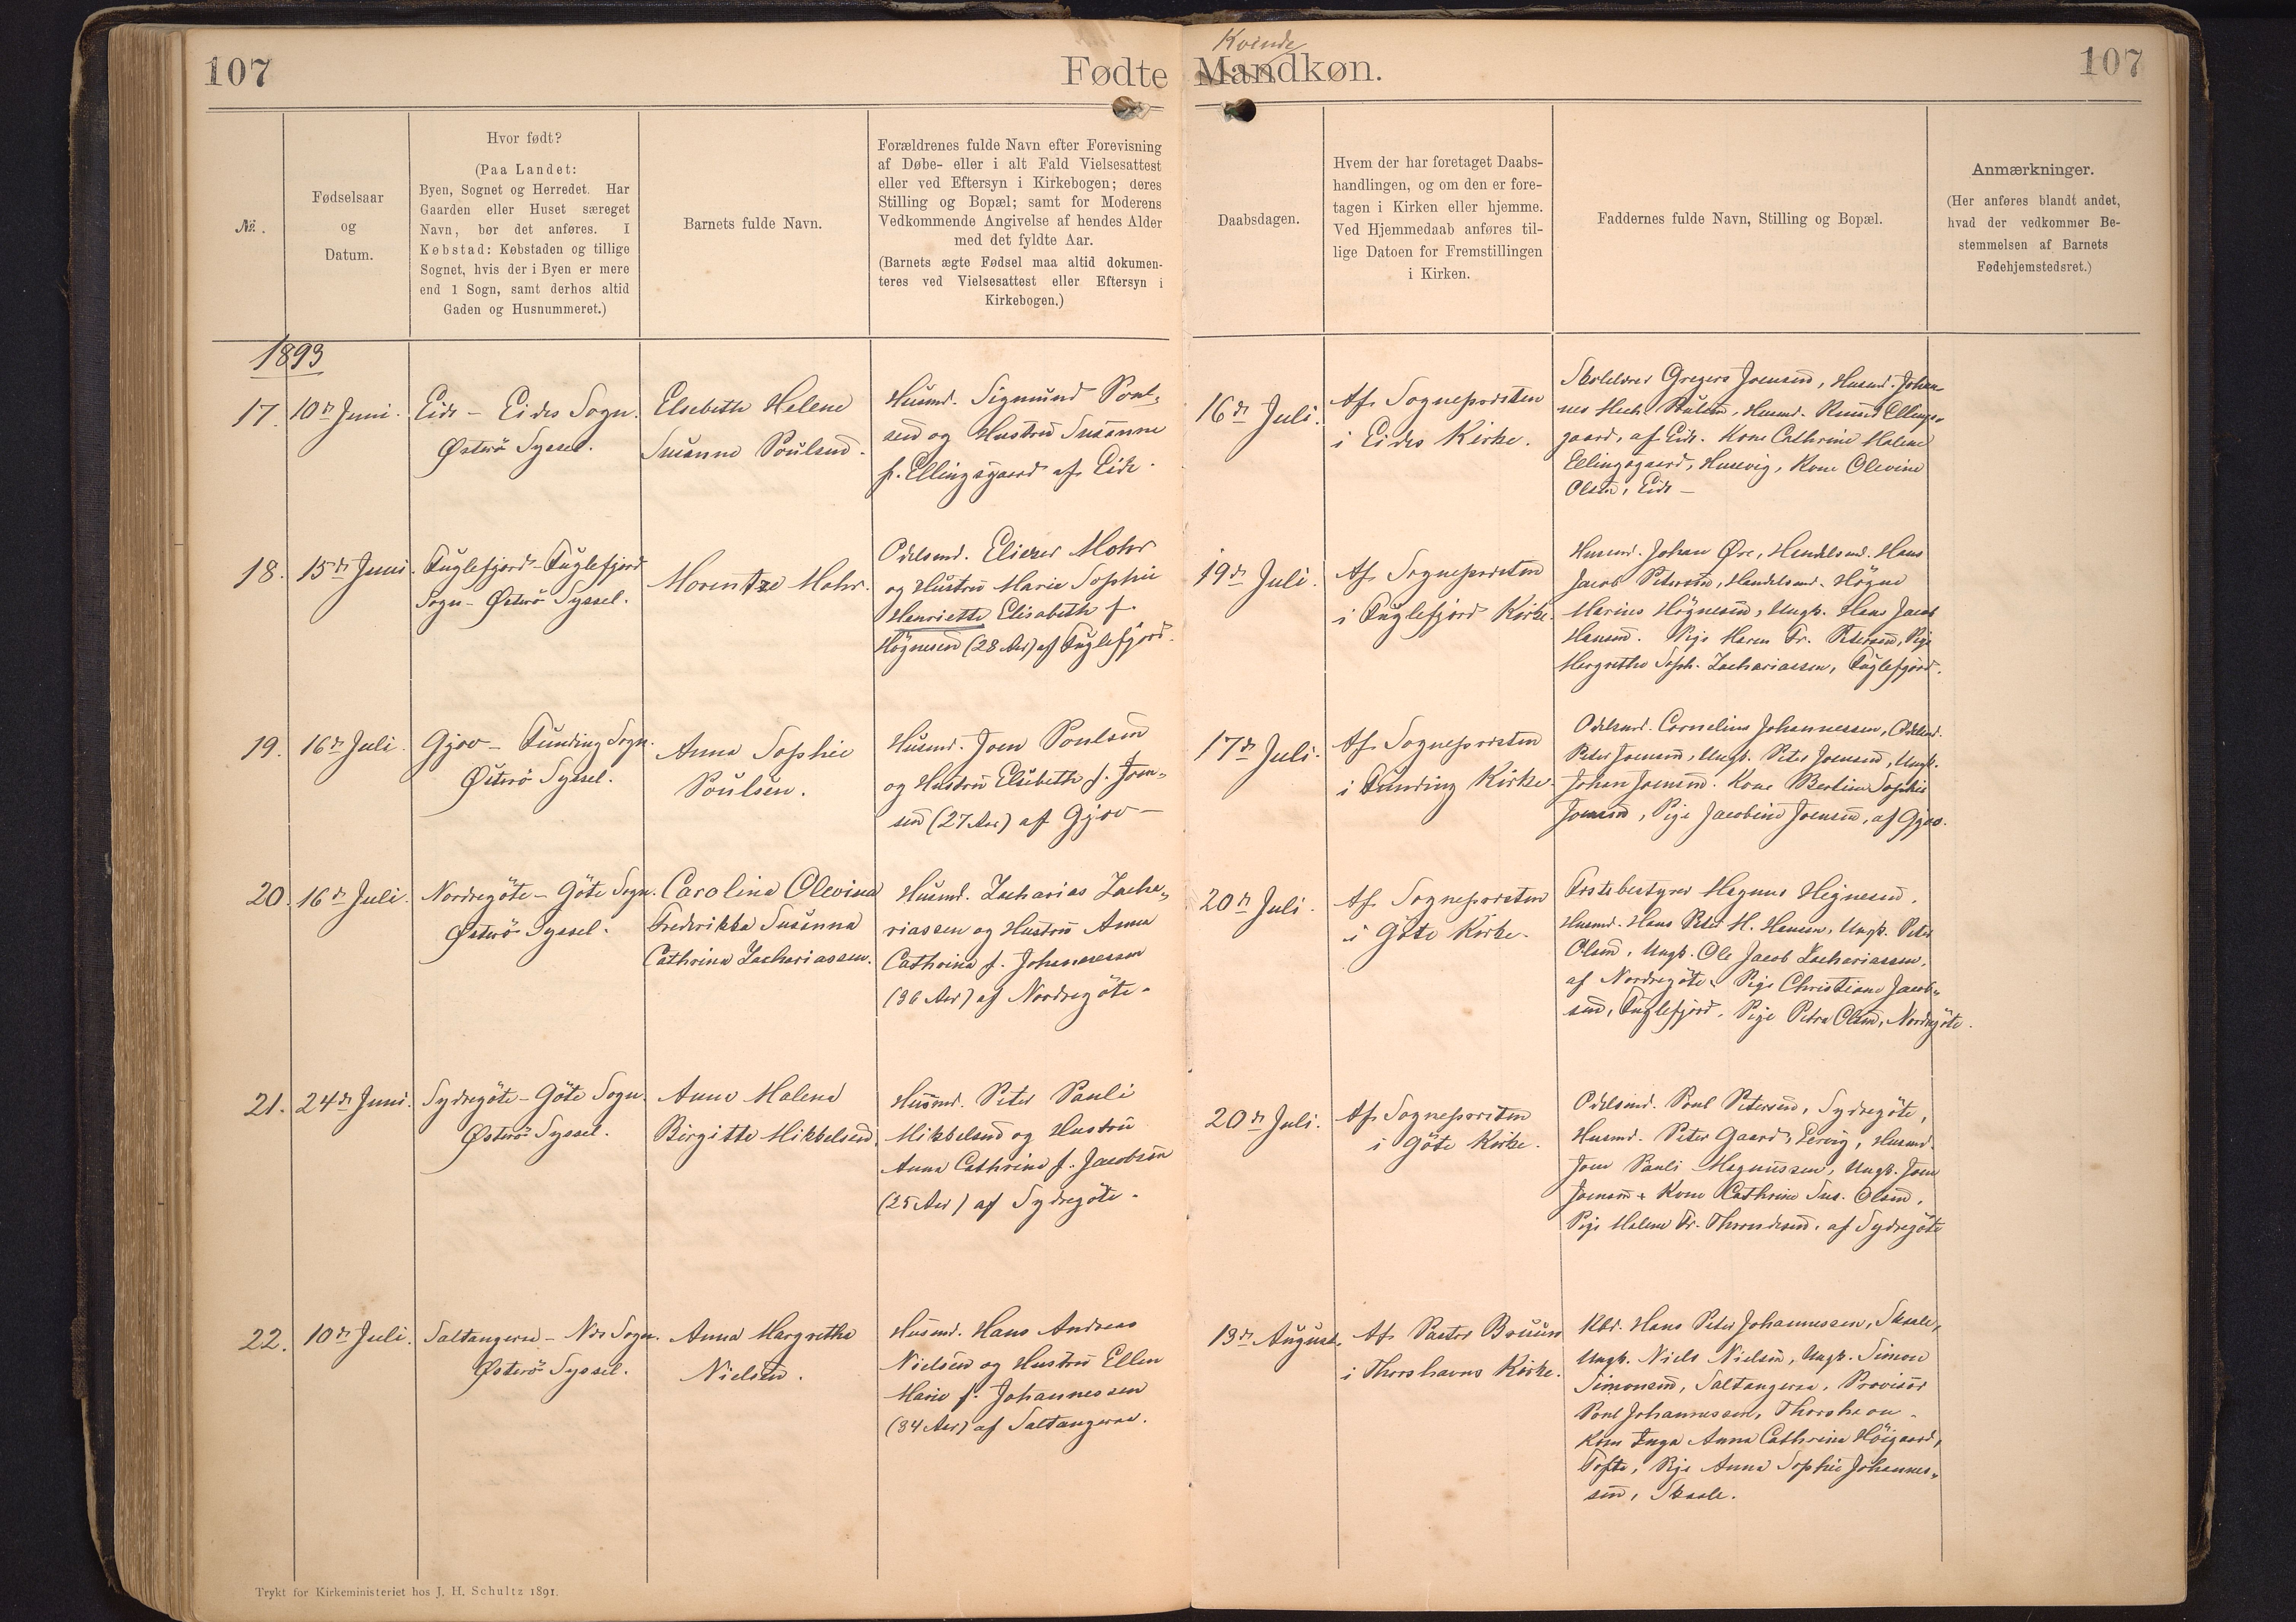 107
Fødte Mandkøn.
Kvinde
107
№.
Fødselsaar
og
Datum.
Hvor født?
(Paa Landet:
Byen, Sognet og Herredet. Har
Gaarden eller Huset særeget
Navn, bør det anføres. I
Købstad: Købstaden og tillige
Sognet, hvis der i Byen er mere
end 1 Sogn, samt derhos altid
Gaden og Husnummeret.)
Barnets fulde Navn.
Forældrenes fulde Navn efter Forevisning
af Døbe- eller i alt Fald Vielsesattest
eller ved Eftersyn i Kirkebogen; deres
Stilling og Bopæl; samt for Moderens
Vedkommende Angivelse af hendes Alder
med det fyldte Aar.
(Barnets ægte Fødsel maa altid dokumen-
teres ved Vielsesattest eller Eftersyn i
Kirkebogen.)
Daabsdagen.
Hvem der har foretaget Daabs-
handlingen, og om den er fore-
tagen i Kirken eller hjemme.
Ved Hjemmedaab anføres til-
lige Datoen for Fremstillingen
i Kirken.
Faddernes fulde Navn, Stilling og Bopæl.
Anmærkninger.
(Her anføres blandt andet,
hvad der vedkommer Be-
stemmelsen af Barnets
Fødehjemstedsret.)
1893
17.
10de Juni.
Eide - Eides Sogn.
Østerö Syssel.
Elsebeth Helene
Susanne Poulsen.
Husmd. Sigmund Poul-
sen og Hustru Susanne
f. Ellingsgaard af Eide.
16de Juli.
Af Sognepresten
i Eides Kirke.
Skolelærer Gregers Joensen, Husmd. Johan-
nes Poulsen, Husmd. Ellings-
gaard, af Eide. Kone Cathrine Malene
Ellingsgaard, Husevig, Kone Olevine
Olsen, Eide -
18.
15de Juni.
Fuglefjord - Fuglefjord
Sogn - Østerö Syssel.
Morentze Mohr.
Odelsmd. Eliezer Mohr
og Hustru Marie Sophie
Henriette Elisabeth f.
Högnesen (28 Aar) af Fuglefjord.
19de Juli.
Af Sognepresten
i Fuglefjord Kirke.
Husmd. Johan Øre, Handelsmd. Hans
Jacob Petersen, Handelsmd. Högne
Marius Högnesen, Ungk. Hans Jacob
Hansen. Pige Maren Fr. Petersen, Pige
Margrethe Soph. Zachariassen, Fuglefjord.
19.
16de Juli.
Gjov - Funding Sogn.
Østerö Syssel.
Anna Sophie
Poulsen.
Husmd. Joen Poulsen
og Hustru Elsebeth f. Joen-
sen (27 Aar) af Gjov -
17de Juli.
Af Sognepresten
i Funding Kirke.
Odelsmd. Cornelius Johannessen, Odelsmd.
Peter Joensen, Ungk. Peter Joensen, Ungk.
Johan Joensen. Kone Bertine Sophie
Joensen, Pige Jacobine Joensen, af Gjov.
20.
16de Juli.
Nordregöte - Göte Sogn.
Østerö Syssel.
Carolina Olevina
Frederikka Susanna
Cathrina Zachariassen.
Husmd. Zacharias Zacha-
riassen og Hustru Anna
Cathrina f. Johannessen
(36 Aar) af Nordregöte.
20de Juli.
Af Sognepresten
i Göte Kirke.
Husmd. Hans Peter H. Hansen, Ungk. Peter
Olsen, Ungk. Ole Jacob Zachariassen,
af Nordregöte. Pige Christiane Jacob-
sen, Fuglefjord, Pige Petra Olsen, Nordregöte.
21.
24de Juni.
Sydregöte - Göte Sogn.
Østerö Syssel.
Anna Malena
Birgitte Mikkelsen.
Husmd. Peter Pauli
Mikkelsen og Hustru
Anna Cathrina f. Jacobsen
(25 Aar) af Sydregöte.
20de Juli.
Af Sognepresten
i Göte Kirke.
Odelsmd. Poul Petersen, Sydregöte,
Husmd. Peter Gaard, Lervig, Husmd.
Joen Pauli Magnussen, Ungk. Joen
Joensen. Kone Cathrine Sus. Olsen,
Pige Malene Fr. Thomdesen, af Sydregöte
22.
10de Juli.
Saltangerne - Nes Sogn.
Østerö Syssel.
Anna Margretha
Nielsen.
Husmd. Hans Andreas
Nielsen og Hustru Ellen
Marie f. Johannessen
(34 Aar) af Saltangerne.
13de August.
Af Pastor Bruun
i Thorshavns Kirke.
Kbd. Hans Peter Johannessen, Skaale,
Ungk. Niels Nielsen, Ungk. Simon
Simonsen, Saltangerne, Provisor
Poul Johannessen, Thorshavn.
Kone Inga Anna Cathrine Höigaard,
Tofte, Pige Anna Sophie Johannes-
sen, Skaale.
Trykt for Kirkeministeriet hos J. H. Schultz 1891.